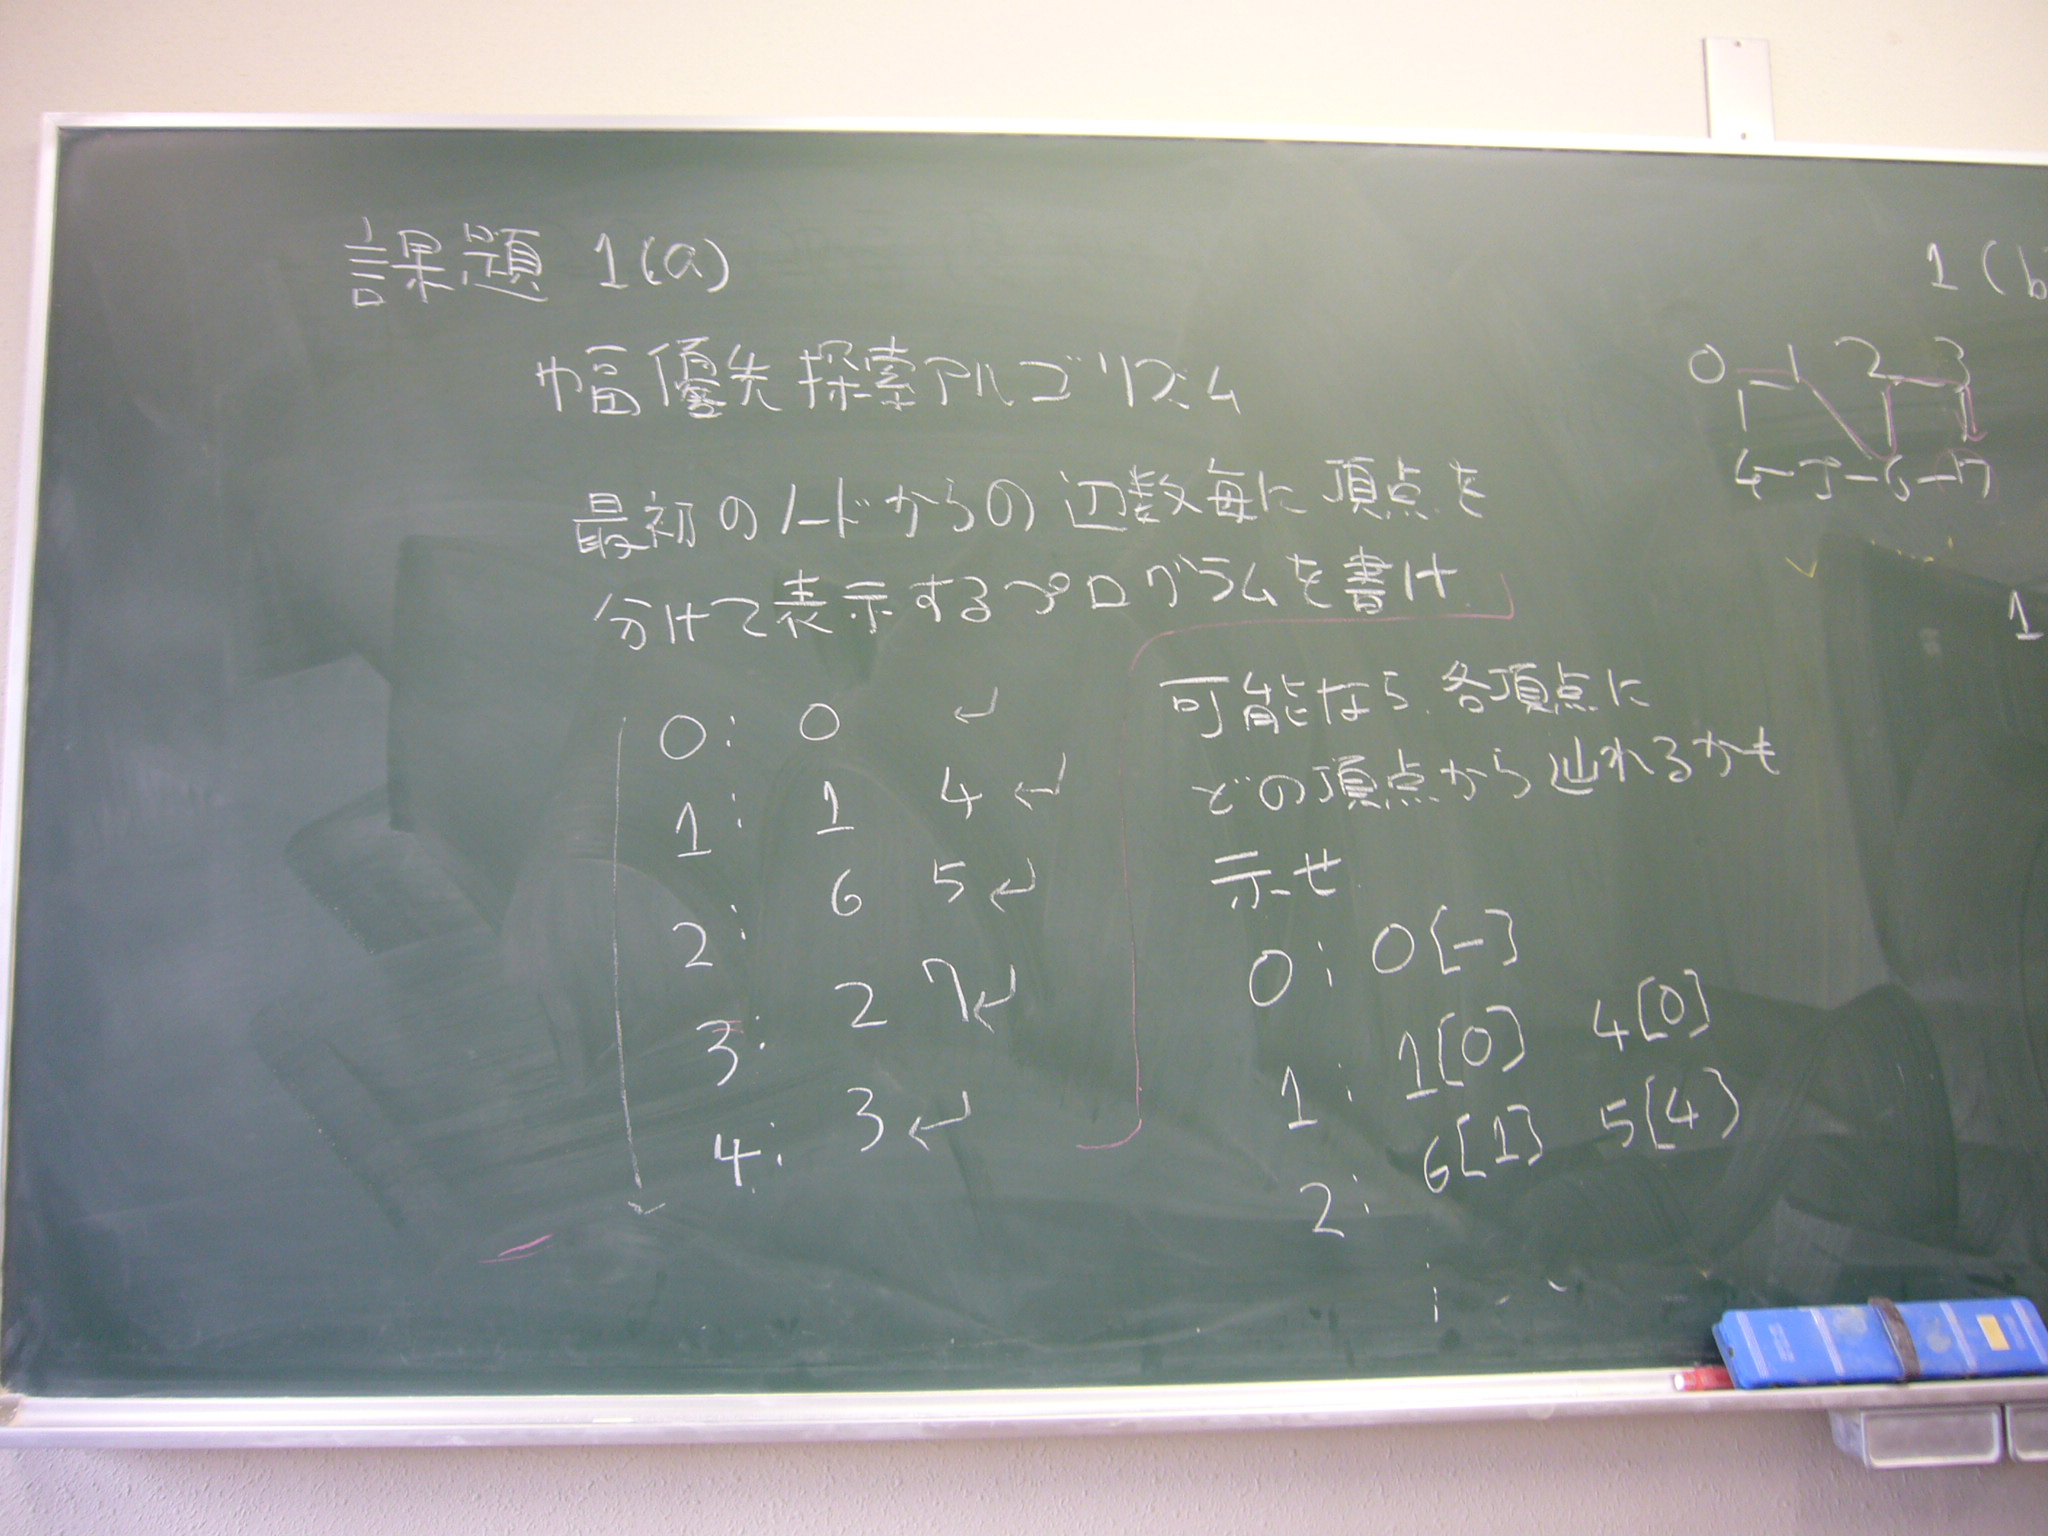 課題 1(a)
幅優先探索アルゴリズム
最初のノードからの辺数毎に頂点を
分けて表示するプログラムを書け.
0: 0 ↲
1: 1 4 ↲
2: 6 5 ↲
3: 2 7 ↲
4: 3 ↲
可能なら、各頂点に
どの頂点から辿れるかも
示せ.
0: 0[-]
1: 1[0] 4[0]
2: 6[1] 5[4]
1(b
0 1 2 3
4-5-6-7
1